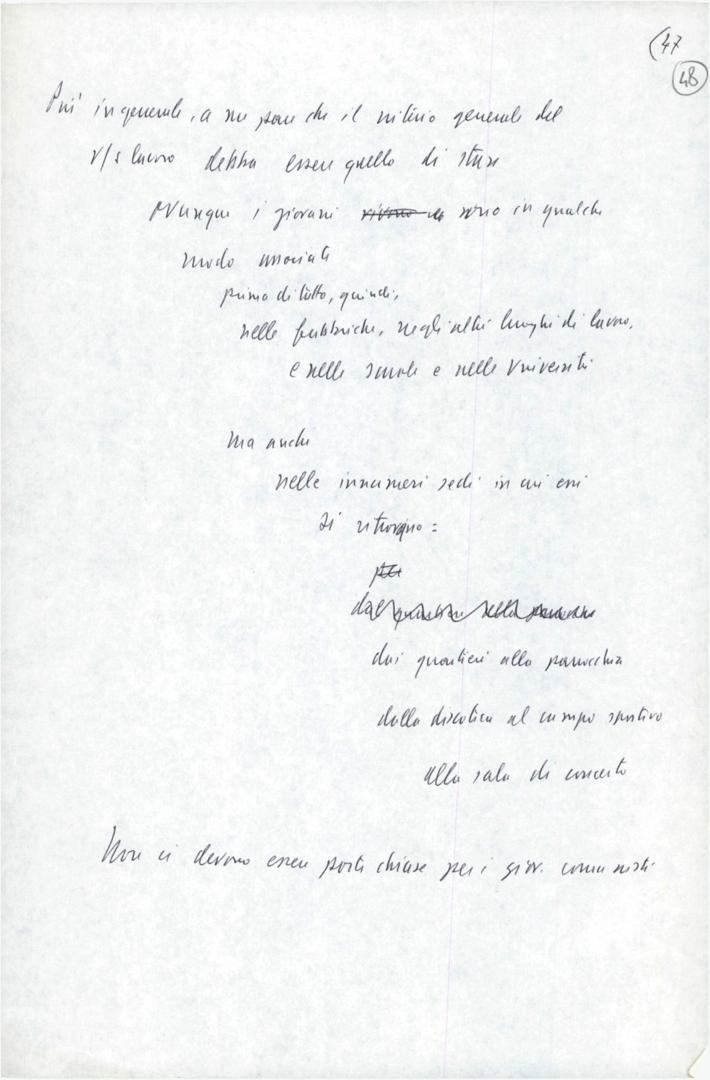 (47
48
Più in generale, a me pare che il criterio generale del
v/s lavoro debba essere quello di stare
ovunque i giovani sono in qualche
modo associati
prima di tutto, quindi,
nelle fabbriche, negli altri luoghi di lavoro,
e nelle scuole e nelle Università
Ma anche
nelle innumeri sedi in cui essi
si ritrovano :
per
dal quartiere alla parrocchia
dai quartieri alla parrocchia
dalla discoteca al campo sportivo
alla sala di concerto
Non ci devono essere porte chiuse per i giov. comunisti